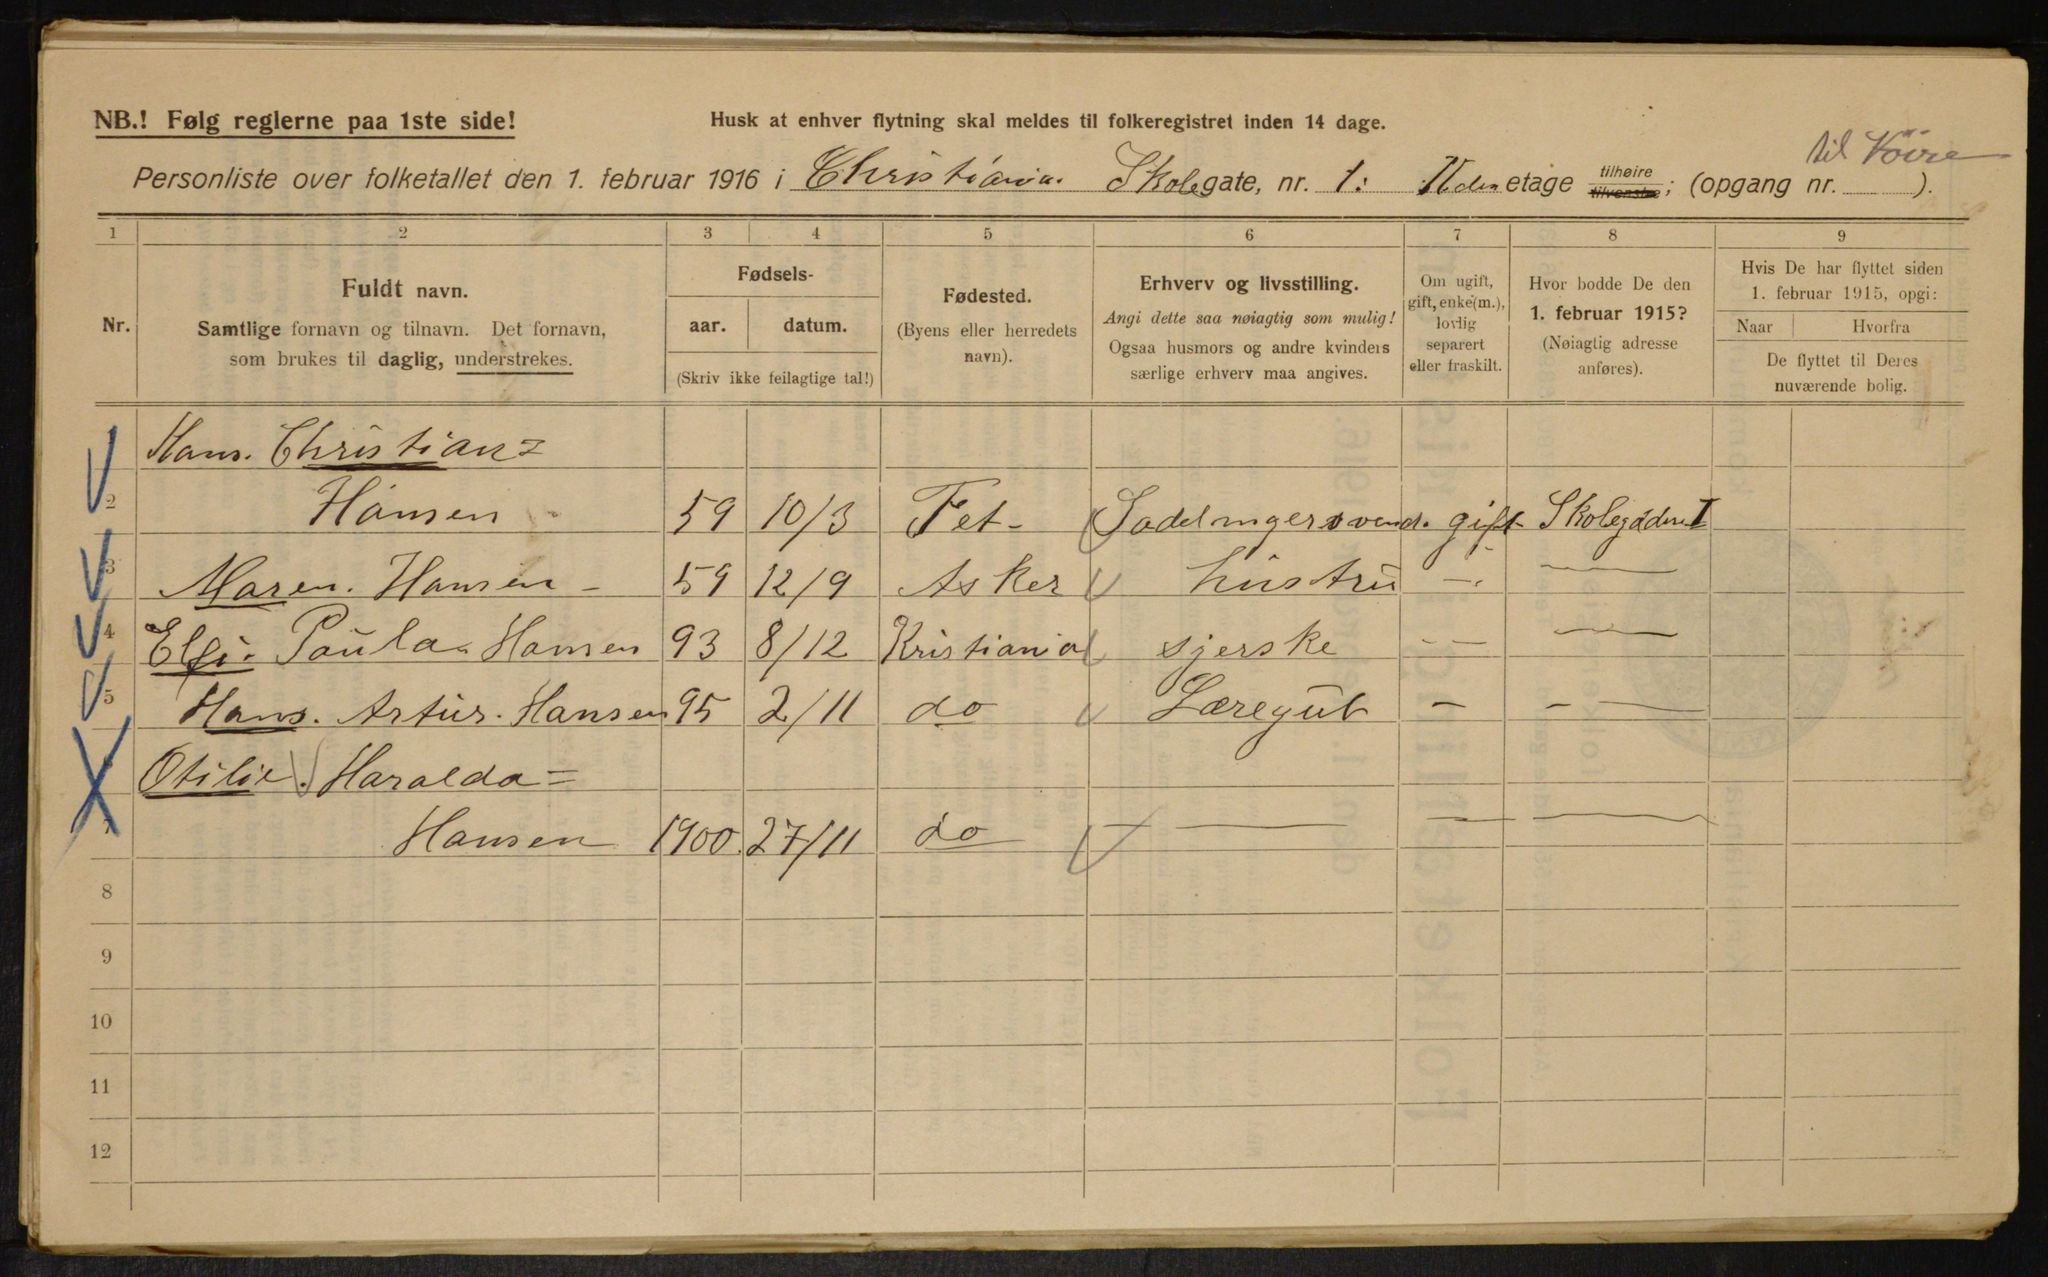 NB.! Følg reglerne paa 1ste side!
Husk at enhver flytning skal meldes til folkeregistret inden 14 dage.
til Vöire
Personliste over folketallet den 1. februar 1916 i Christiania. Skolegate, nr. 1: II den etage tilhøire tilvenstre; (opgang nr. ).
1 2 3 4 5 6 7 8 9
Nr.
Fuldt navn.
Samtlige fornavn og tilnavn. Det fornavn,
som brukes til daglig, understrekes.
Fødsels-
aar. datum.
(Skriv ikke feilagtige tal!)
Fødested.
(Byens eller herredets
navn).
Erhverv og livsstilling.
Angi dette saa nøiagtig som mulig!
Ogsaa husmors og andre kvinders
særlige erhverv maa angives.
Om ugift,
gift, enke(m.),
lovlig
separert
eller fraskilt.
Hvor bodde De den
1. februar 1915?
(Nøiagtig adresse
anføres).
Hvis De har flyttet siden
1. februar 1915, opgi:
Naar Hvorfra
De flyttet til Deres
nuværende bolig.
Hans. Christian=
2 Hansen 59 10/3 Fet- Sadelmagersvend. gift Skolegaden I
3 Maren. Hansen - 59 12/9 Asker hustru
4 Paula. Hansen 93 8/12 Kristiania sjerske
5 Hans. Artur. Hansen 95 2/11 do Læregut - -
6 Otilie. Haralda=
7 Hansen 1900. 27/11 do
8
9
10
11
12